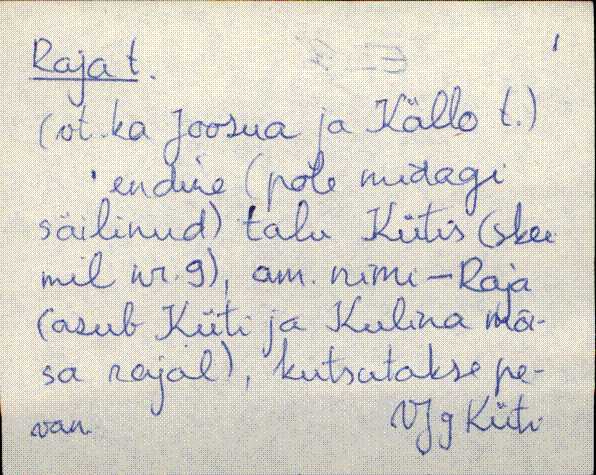 1
Raja t.
(vt. ka Joosua ja Källo t.)
'endine (pole midagi
säilinud) talu Kütis (skee
mil nr. 9), am. nimi – Raja
(asub Küti ja Kulina mõi-
sa rajal), kutsutakse pe-
VJg Küti